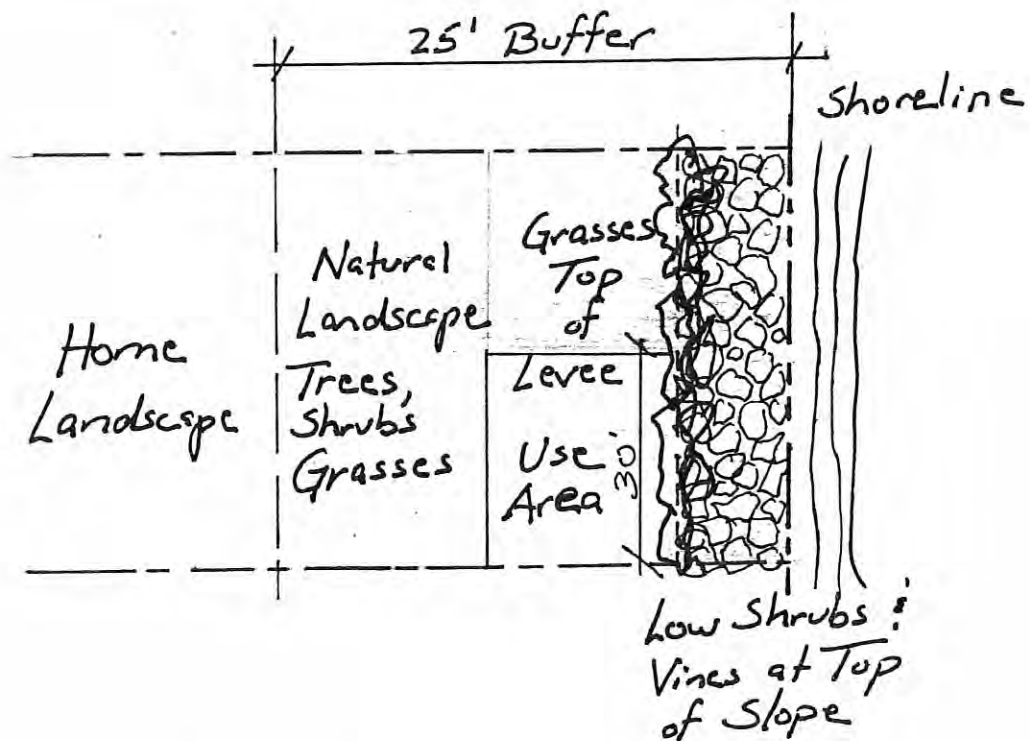 25' Buffer
Shoreline
Home
Landscape
Natural
Landscape
Trees,
Shrubs
Grasses
Grasses
Top
of
Levee
Use
Area
30'
Low Shrubs &
Vines at Top
of Slope